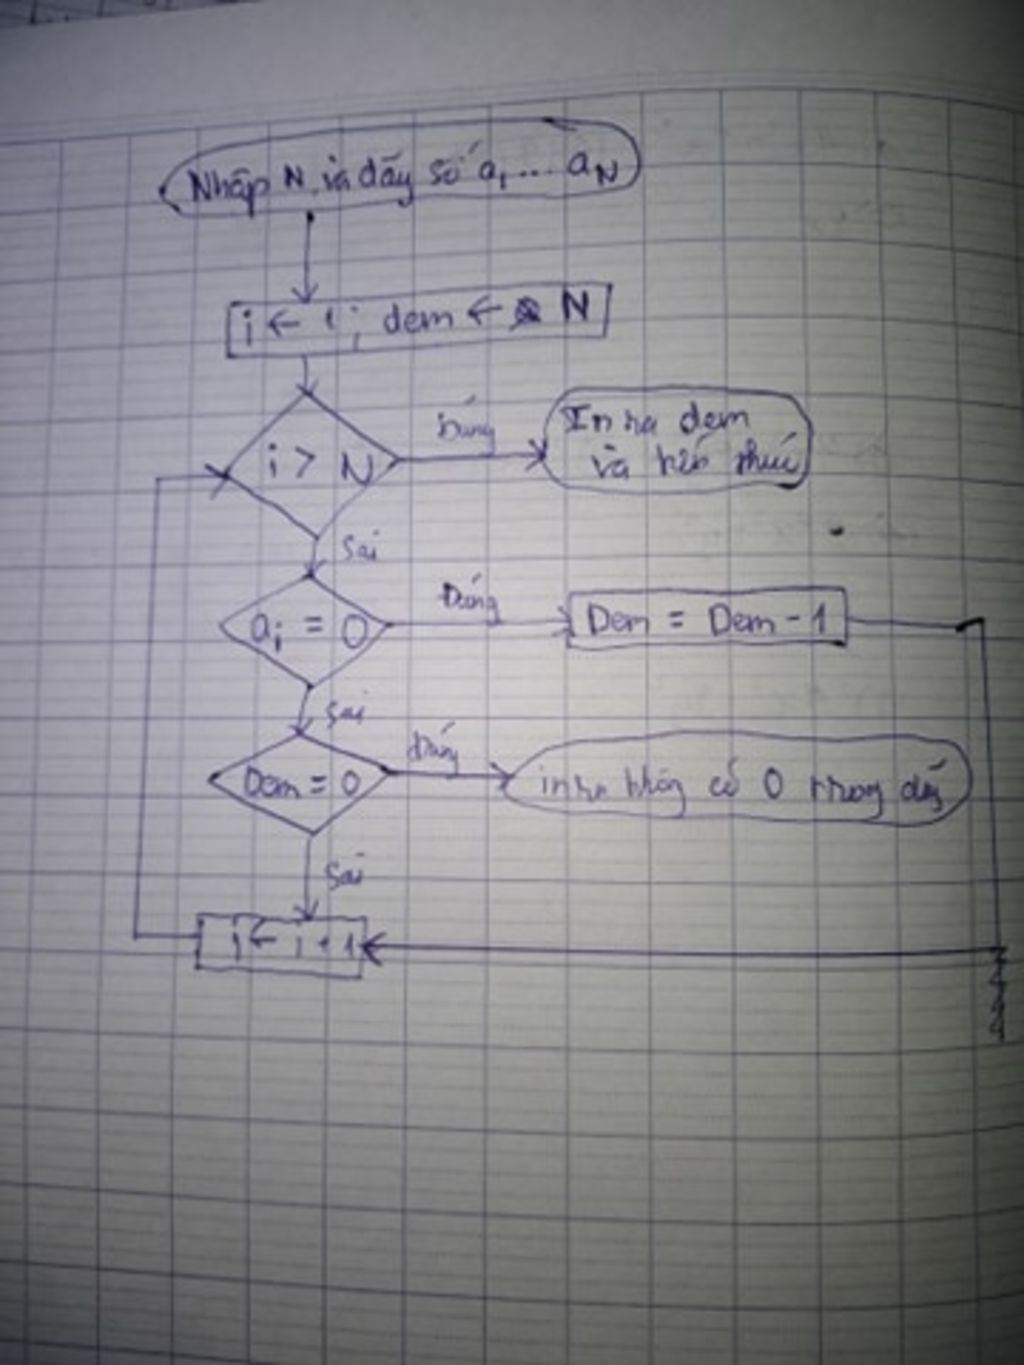 Nhập N và dãy số a₁ ... a_N
i ← 1; dem ← N
i > N
Đúng
In ra dem
và kết thúc
Sai
aᵢ = 0
Đúng
Dem = Dem - 1
Sai
Dem = 0
Đúng
in ra không có 0 trong dãy
Sai
i ← i + 1